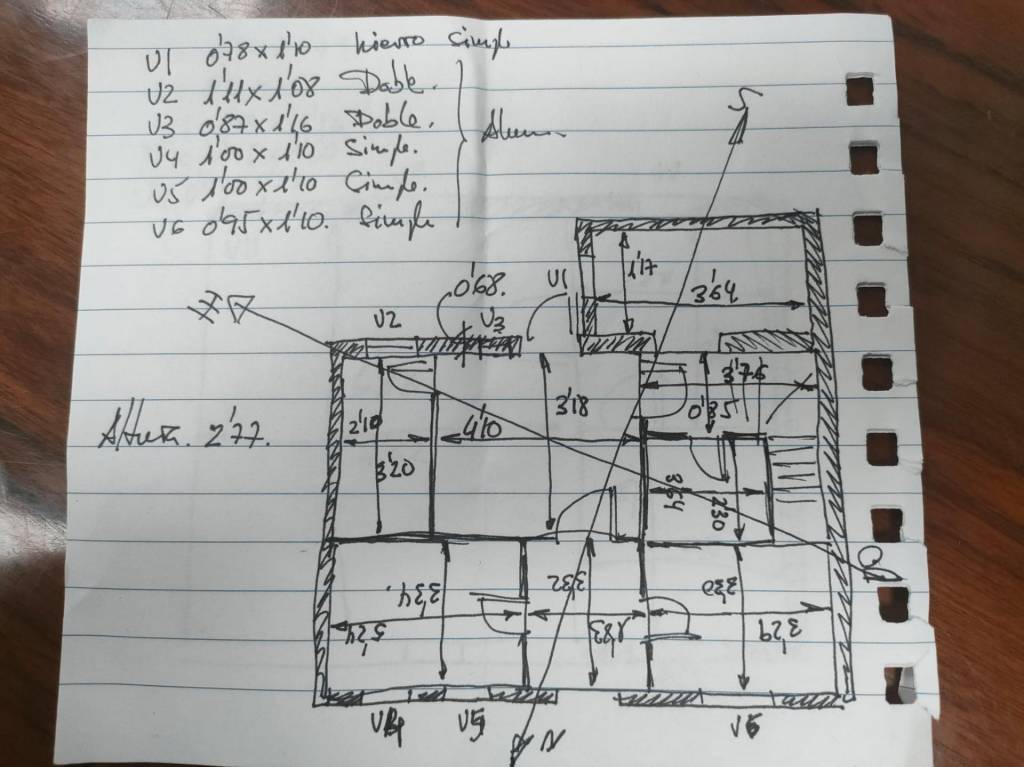 V1 0'78 x 1'10 hierro simple
V2 1'11 x 1'08 Doble.
V3 0'87 x 1'16 Doble.
V4 1'00 x 1'10 Simple.
V5 1'00 x 1'10 Simple.
V6 0'95 x 1'10. Simple
S
1'17
3'64
0'68.
V1
V2
V3
3'75
0'85
3'18
2'10
4'10
3'20
Altura. 2'77.
3'64
2'30
3'34.
3'32
3'30
5'24
1'83
3'29
V4
V5
V6
N